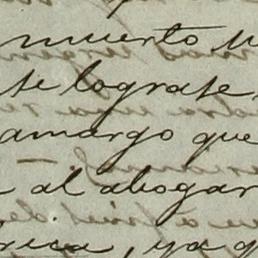 muerto
se lograse
amargo que
al abogar
rica, ya q